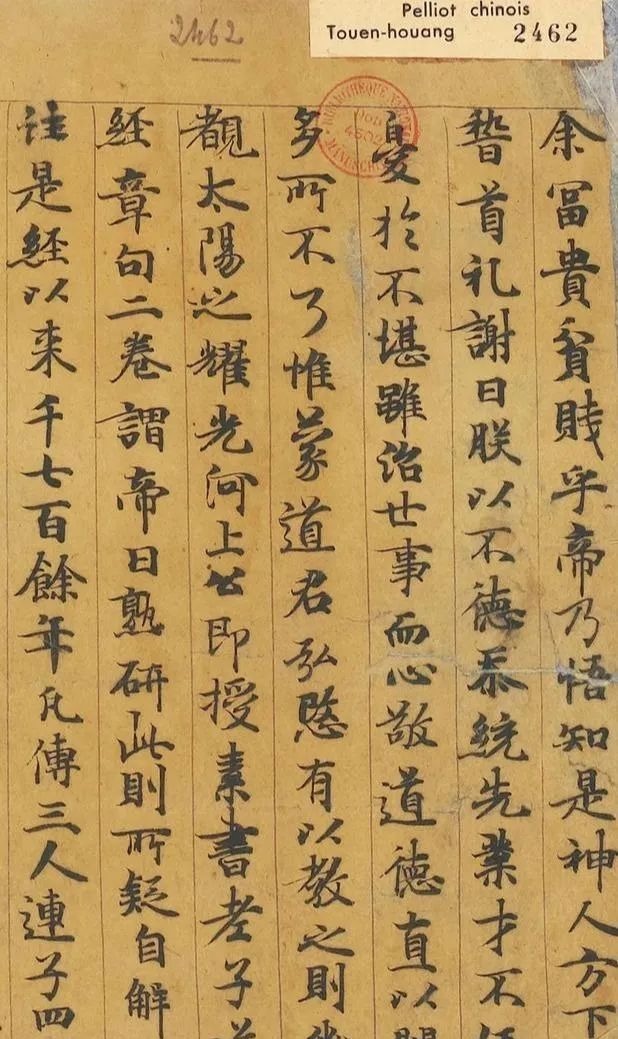 Pelliot chinois
Touen-houang 2462
2462
DON
4502
MANUSCRITS
余冨貴貧賎乎帝乃悟知是神人方下
稽首礼謝曰朕以不德忝統先業才不
憂於不堪雖治世事而心敬道德直以
多所不了惟蒙道君弘愍有以教之則
覩太陽之耀光河上公即授素書老子道
経章句二卷謂帝曰熟研此則所疑自解
註是経以来千七百餘年凢傳三人連子四